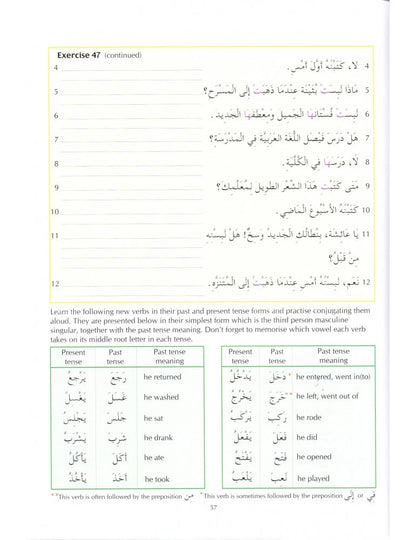 Exercise 47 (continued)
4 لا، كَتَبَتْهُ أوَّلَ أمْسِ. 4
5 ماذا لَبِسَتْ بُثَيْنَة عِنْدَما ذَهَبَتْ إلى المَسْرَح؟ 5
6 لَبِسَتْ فُسْتانَها الجَميل ومَعْطَفَها الجَديد. 6
7 هَلْ دَرَسَ فَيْصَل اللُّغَة العَرَبِيَّة في المَدْرَسَة؟ 7
8 لا، دَرَسَها في الكُلِّيَة. 8
9 مَتى كَتَبْتَ هَذا الشِّعْر الطَويل لِمُعَلِّمِكَ؟ 9
10 كَتَبْتُهُ الأُسْبوعَ الماضي. 10
11 يا عائِشَة، بَنْطالُكِ الجَديدُ وَسِخٌ! هَلْ لَبِسْتِهِ 11
مِنْ قَبْلُ؟
12 نَعَم، لَبِسْتُهُ أَمْسِ عِنْدَما ذَهَبْتُ إلى المُنْتَزَه. 12
Learn the following new verbs in their past and present tense forms and practise conjugating them
aloud. They are presented below in their simplest form which is the third person masculine
singular, together with the past tense meaning. Don't forget to memorise which vowel each verb
takes on its middle root letter in each tense.
Present tense Past tense Past tense meaning
يَرْجِعُ رَجَعَ he returned
يَغْسِلُ غَسَلَ he washed
يَجْلِسُ جَلَسَ he sat
يَشْرَبُ شَرِبَ he drank
يَأْكُلُ أَكَلَ he ate
يَأْخُذُ أَخَذَ he took
Present tense Past tense Past tense meaning
يَدْخُلُ دَخَلَ* he entered, went in(to)
يَخْرُجُ خَرَجَ** he left, went out of
يَرْكَبُ رَكِبَ he rode
يَفْعَلُ فَعَلَ he did
يَفْتَحُ فَتَحَ he opened
يَلْعَبُ لَعِبَ he played
**This verb is often followed by the preposition مِن *This verb is sometimes followed by the preposition إِلَى or في
57